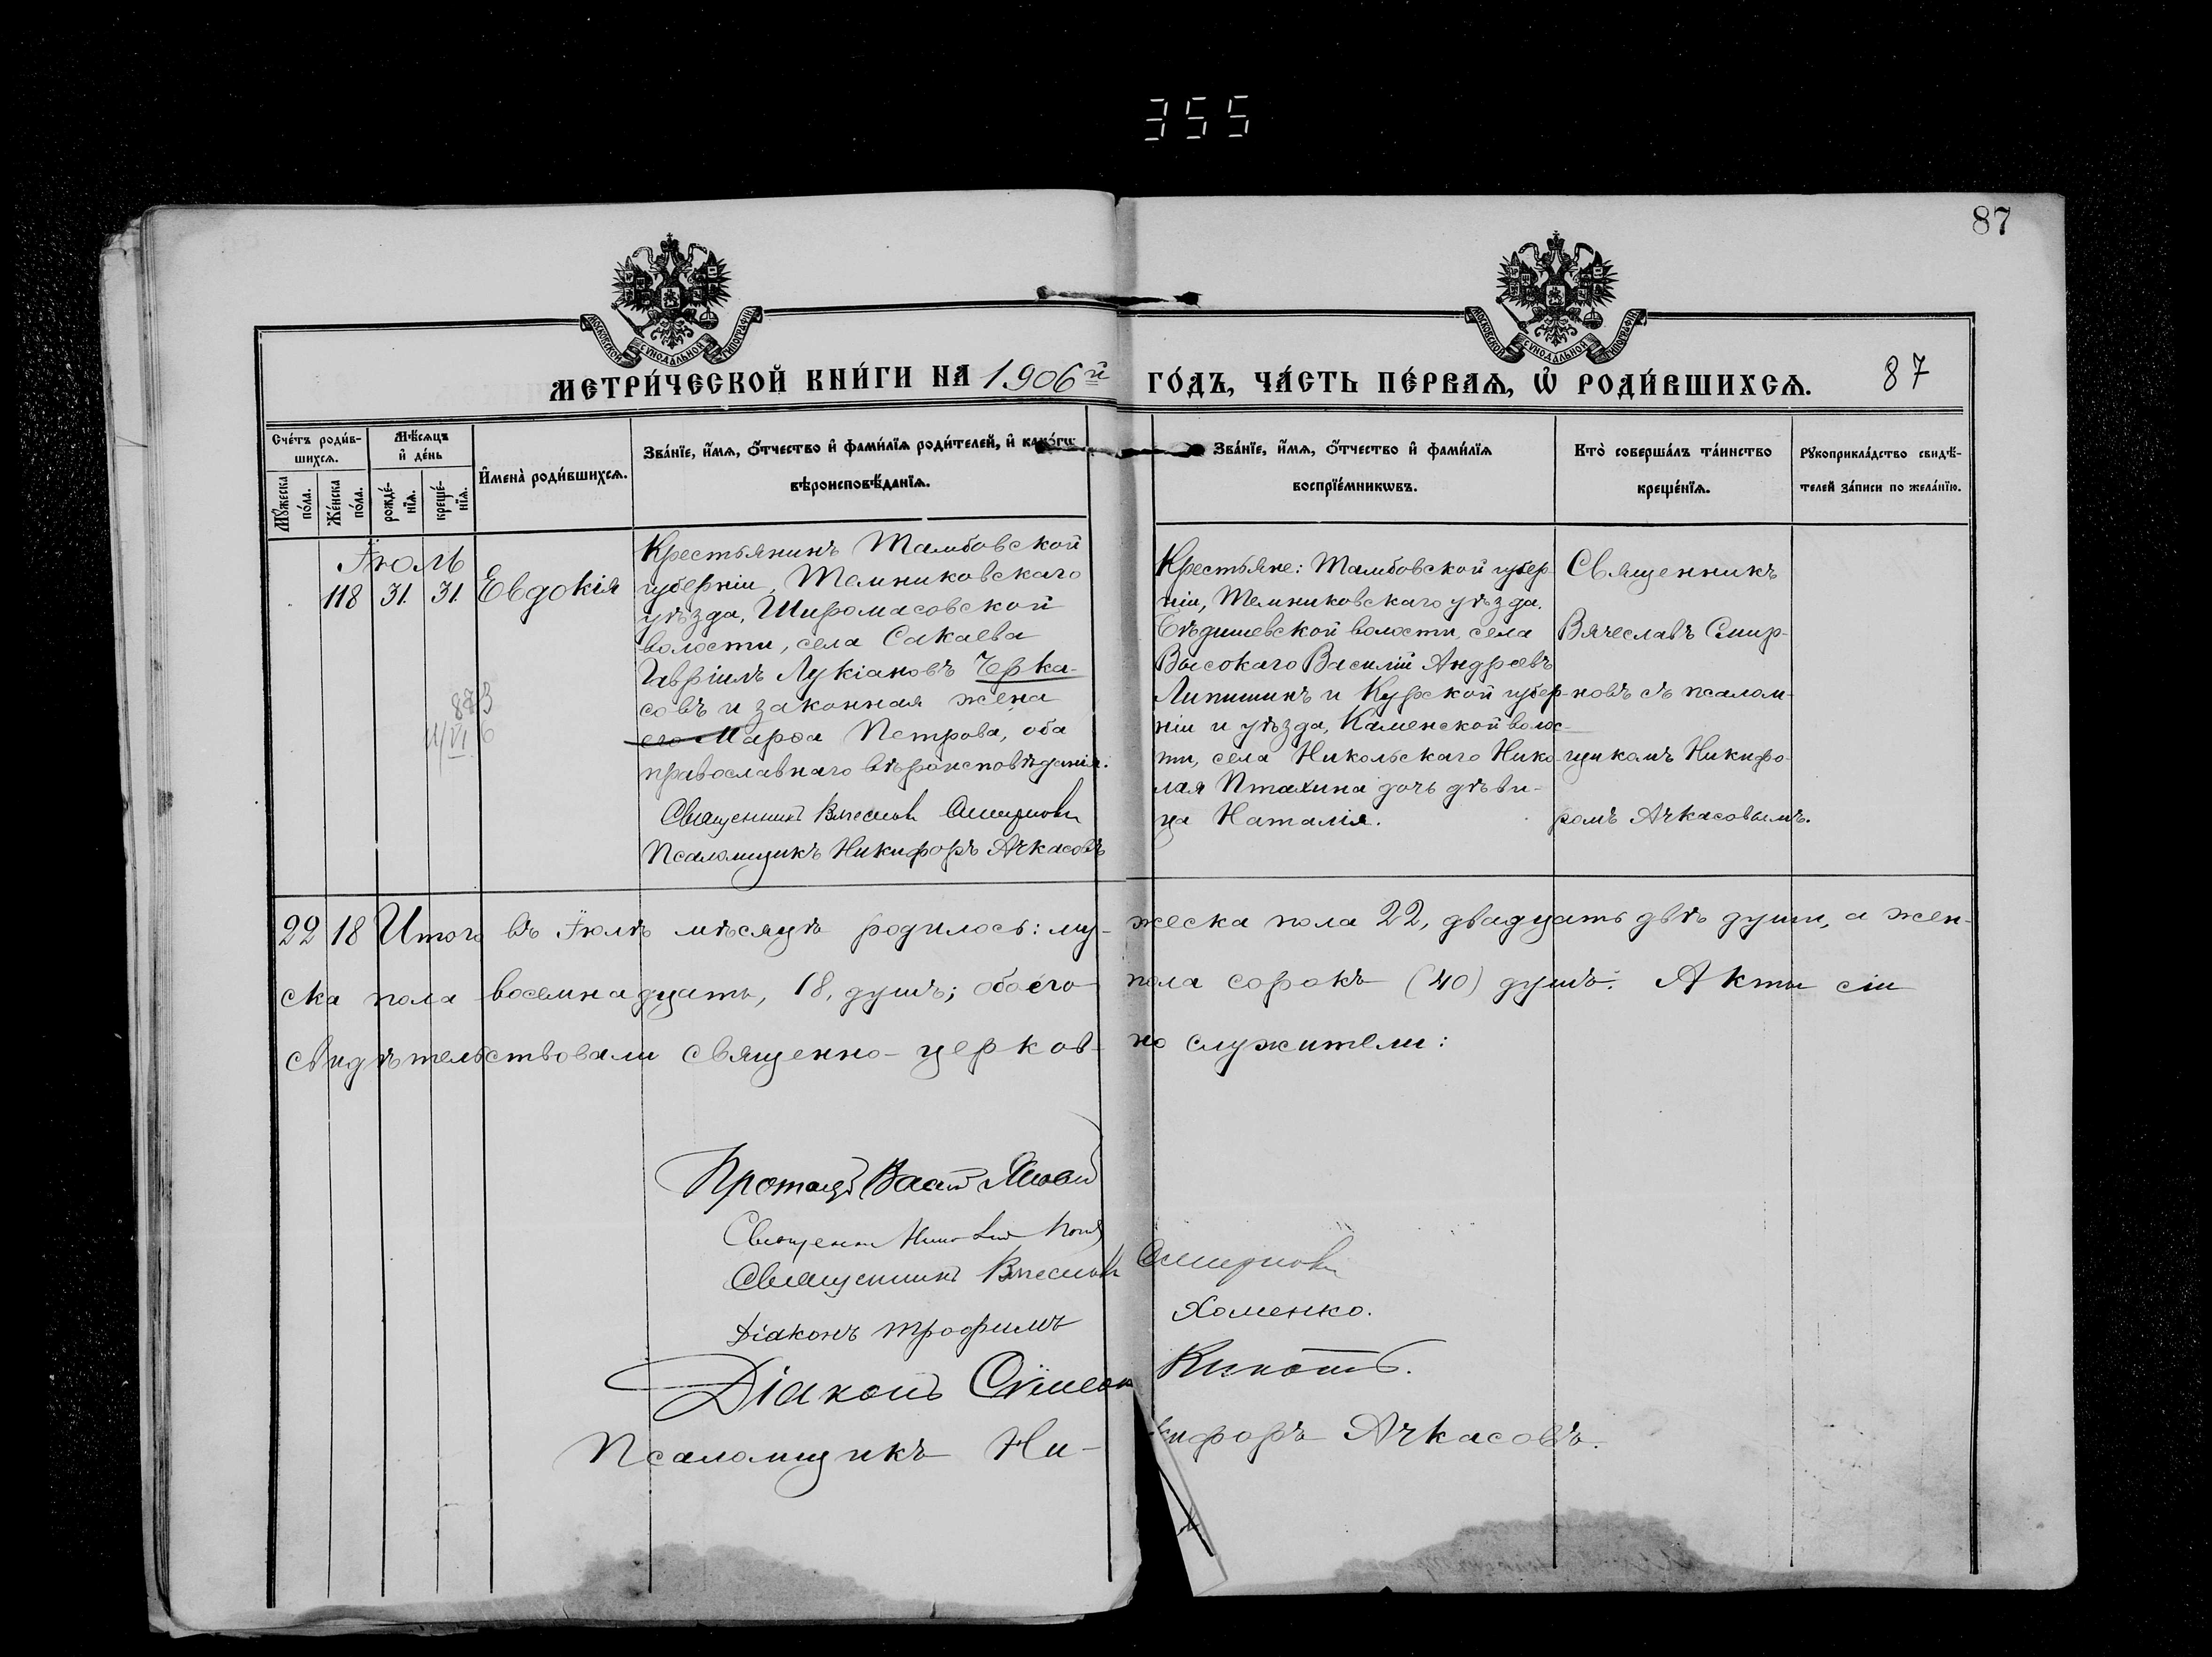 355
87
МОСКОВСКОЙ СѴНОДАЛЬНОЙ ТИПОГРАФІИ
МОСКОВСКОЙ СѴНОДАЛЬНОЙ ТИПОГРАФІИ
МЕТРИ́ЧЕСКОЙ КНИ́ГИ НА 1906й ГО́ДЪ, ЧА́СТЬ ПЕ́РВАѦ, Ѡ҆ РОДИ́ВШИХСѦ. 87
Сче́тъ роди́в-
шихсѧ.
Мꙋ́жеска по́ла.
Же́нска по́ла.
Мѣ́сѧцъ
и҆ де́нь
рожде́-
нїѧ.
креще́-
нїѧ.
И҆мена̀ роди́вшихсѧ.
Зва́нїе, и҆́мѧ, ѻ҆́тчество и҆ фами́лїѧ роди́телей, и҆ како́гѡ
вѣроисповѣ́данїѧ.
Зва́нїе, и҆́мѧ, ѻ҆́тчество и҆ фами́лїѧ
воспрїе́мникѡвъ.
Кто̀ соверша́лъ та́инство
креще́нїѧ.
Рꙋкоприкла́дство свидѣ́-
телей за́писи по жела́нїю.
Іюль
118 31. 31. Евдокія
Крестьянинъ Тамбовской
губерніи, Темниковскаго
уѣзда, Широмасовской
волости, села Сакаева
Гавріилъ Лукіановъ Черка-
совъ и законная жена
его Марѳа Петрова, оба
православнаго вѣроисповѣданія.
Священникъ Вячеславъ Смирновъ
Псаломщикъ Никифоръ Ачкасовъ
Крестьяне: Тамбовской губер-
ніи, Темниковскаго уѣзда,
Бѣдишевской волости, села
Высокаго Василій Андреевъ
Липишинъ и Курской губер-
ніи и уѣзда, Каменской волос-
ти, села Никольскаго Нико-
лая Птахина дочь дѣви-
ца Наталія.
Священникъ
Вячеславъ Смир-
новъ съ псалом-
щикомъ Никифо-
ромъ Ачкасовымъ.
22 18 Итого въ Іюлѣ мѣсяцѣ родилось: му- жеска пола 22, двадцать двѣ души, а жен-
ска пола восемнадцать, 18, душъ; обоего пола сорокъ (40) душъ. Акты сіи
свидѣтельствовали священно-церков- но служители:
Священникъ Вячеславъ Смирновъ
Діаконъ Трофимъ Хоменко.
Діаконъ Сѵмеон
Псаломщикъ Ни- кифоръ Ачкасовъ.